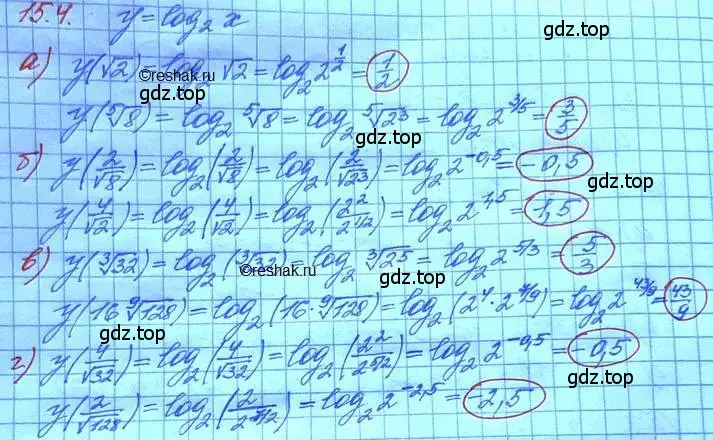 15.4. y = log₂ x
gdz.top
а) y(√2) = log₂ √2 = log₂ 2^(1/2) = 1/2
©reshak.ru
gdz.top
y(⁵√8) = log₂ ⁵√8 = log₂ ⁵√2³ = log₂ 2^(3/5) = 3/5
gdz.top
б) y(2/√8) = log₂(2/√8) = log₂(2/√2³) = log₂ 2^(-0,5) = -0,5
gdz.top
y(4/√2) = log₂(4/√2) = log₂(2²/2^(1/2)) = log₂ 2^(1,5) = 1,5
gdz.top
в) y(³√32) = log₂(³√32) = log₂ ³√2⁵ = log₂ 2^(5/3) = 5/3
©reshak.ru
gdz.top
y(16 ⁹√128) = log₂(16·⁹√128) = log₂(2⁴·2^(7/9)) = log₂ 2^(43/9) = 43/9
gdz.top
г) y(4/√32) = log₂(4/√32) = log₂(2²/2^(5/2)) = log₂ 2^(-0,5) = -0,5
gdz.top
y(2/√128) = log₂(2/2^(7/2)) = log₂ 2^(-2,5) = -2,5
gdz.top